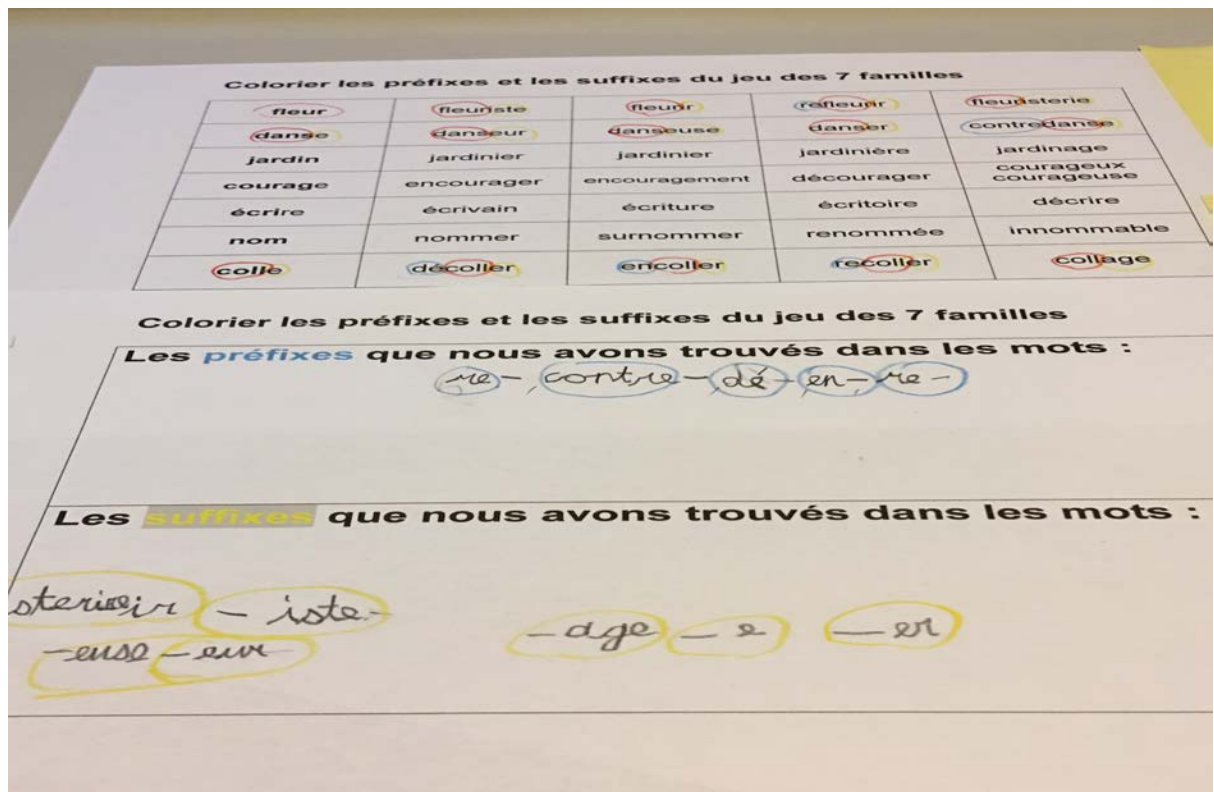 Colorier les préfixes et les suffixes du jeu des 7 familles
fleur fleuriste fleurir refleurir fleuristerie
danse danseur danseuse danser contredanse
jardin jardinier jardinier jardinière jardinage
courage encourager encouragement décourager courageux courageuse
écrire écrivain écriture écritoire décrire
nom nommer surnommer renommée innommable
colle décoller encoller recoller collage
Colorier les préfixes et les suffixes du jeu des 7 familles
Les préfixes que nous avons trouvés dans les mots :
re-, contre-, dé-en-, re-
Les suffixes que nous avons trouvés dans les mots :
- iste-
-age - e - er
-euse -eur